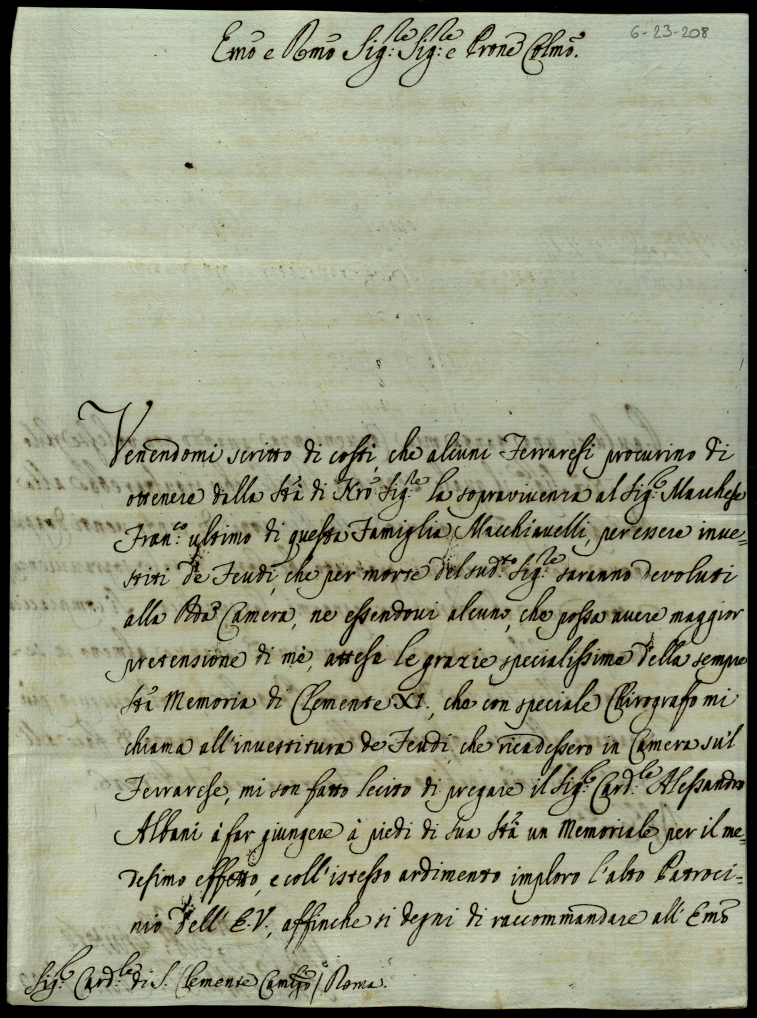 6-23-208
Emo e Rmo Sig:re Sig:re e Prone Colmo.
Venendomi scritto di costi, che alcuni Ferraresi procurino di
ottenere dalla Stà di Nro Sigre la sopravivenza al Sig:r Marchese
Franco: ultimo di questa Famiglia Macchiavelli, per essere inve=
stiti de Feudi, che per morte del sudto: Sig:re saranno devoluti
alla Rda Camera, ne essendovi alcuno, che possa avere maggior
pretensione di mè, attese le grazie specialissime della sempre
Stà Memoria di Clemente XI., che con speciale Chirografo mi
chiama all'investitura de Feudi, che ricadessero in Camera sul
Ferrarese, mi son fatto lecito di pregare il Sig:r Card:le Alessandro
Albani à far giungere à piedi di sua Stà un Memoriale per il me=
desimo effetto, e coll'istesso ardimento imploro l'alto Patroci=
nio dell' E.V., affinche si degni di raccommandare all' Emo
Sig:r Card:le di S. Clemente / Roma.